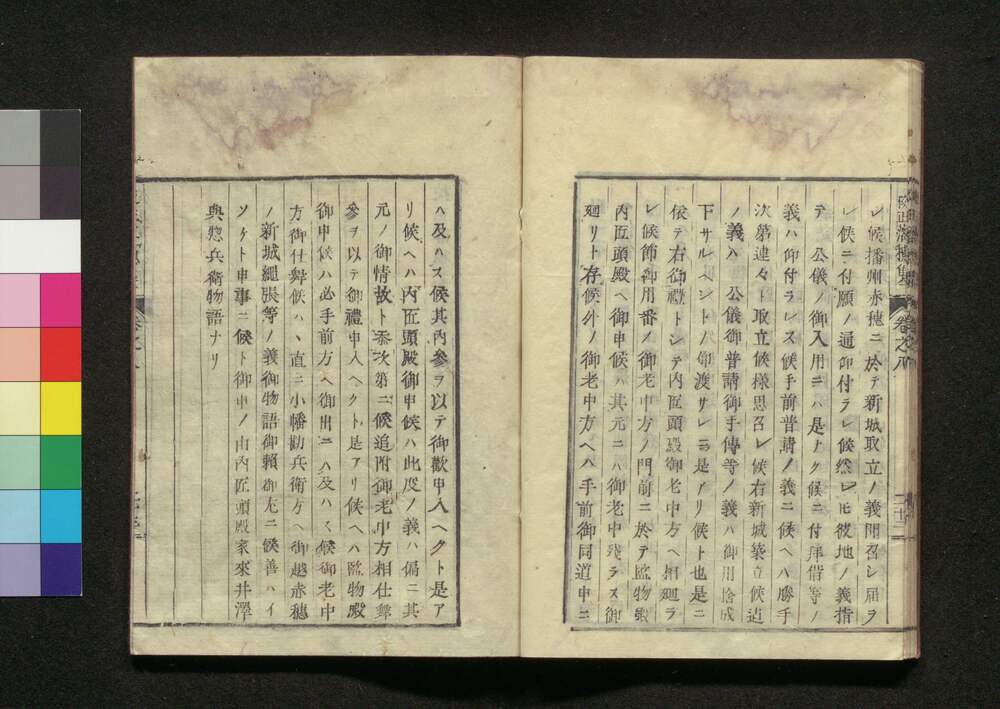 レ候播州赤穗ニ於テ新城取立ノ義聞召レ屆ヲ
レ候ニ付願ノ通御付ラレ候然レヒ彼地ノ義指
テ　公儀ノ御入用ニハ是ナク候ニ付拜借等ノ
義ハ仰付ラレス候手前普請ノ義ニ候ヘハ勝手
次第連々ト取立候樣思召レ候右新城築立候迄
ノ義ハ　公儀御普請御手傳等ノ義ハ御用捨成
下サルヘシトノ仰渡サレニ是アリ候ト也是ニ
依テ右御禮トシテ内匠頭殿御老中方ヘ相廻ラ
レ候節御用番ノ御老中方ノ門前ニ於テ監物殿
内匠頭殿ヘ御申候ハ其元ニハ御老中殘ラス御
廻リト存候外ノ御老中方ヘハ手前御同道申ニ
ハ及ハス候其内參ヲ以テ御歡申入ヘクト是ア
リ候ヘハ内匠頭殿御申候ハ此度ノ義ハ偏ニ其
元ノ御情故ト忝次第ニ候追附御老中方相仕舞
參ヲ以テ御禮申入ヘクト是アリ候ヘハ監物殿
御申候ハ必手前方ヘ御出ニハ及ハス候御老中
方御仕舞候ハヽ直ニ小幡勘兵衛方ヘ御越赤穗
ノ新城繩張等ノ義御物語御賴御尤ニ候善ハイ
ソケト申事ニ候ト御申ノ由内匠頭殿家來井澤
與惣兵衛物語ナリ
卷之八
二十二